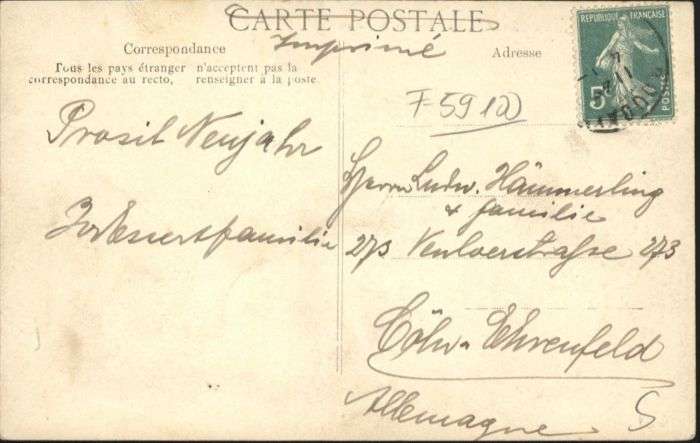 CARTE POSTALE
Imprimé
Correspondance
Tous les pays étranger n'acceptent pas la
correspondance au recto, renseigner à la poste.
Adresse
RÉPUBLIQUE FRANÇAISE
5c
POSTES
F 5910
Prosit Neujahr
Herrn Ludw. Hämmerling
& familie
273 Venloerstraße 273
Cöln-Ehrenfeld
Allemagne